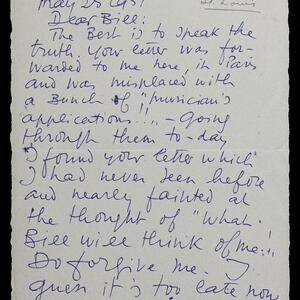 May 28 1951
St. Louis
Dear Bill:
The Best is to speak the
truth. Your letter was for-
warded to me here, in Paris
and was misplaced with
a Bunch of "musician's
applications!!.. - Going
through them to-day
I found your letter which
I had never seen before
and nearly fainted at
the thought of "What.
Bill will think of me"!!
Do forgive me. I
guess it is too late now